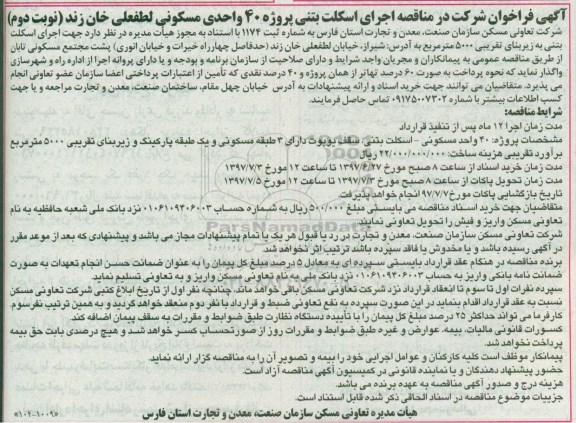 آگهی فراخوان شرکت در مناقصه اجرای اسکلت بتنی پروژه ۴۰ واحدی مسکونی لطفعلی خان زند (نوبت دوم)
شرکت تعاونی مسکن سازمان صنعت، معدن و تجارت استان فارس به شماره ثبت ۱۱۷۴ با استناد به مجوز هیأت مدیره در نظر دارد جهت اجرای اسکلت
بتنی به زیربنای تقریبی ۵۰۰۰ مترمربع به آدرس: شیراز، خیابان لطفعلی خان زند (حدفاصل چهارراه خیرات و خیابان انوری) پشت مجتمع مسکونی تابان
از طریق مناقصه عمومی به پیمانکاران و مجریان واجد شرایط و دارای صلاحیت از سازمان برنامه و بودجه و یا دارای پروانه اجرا از اداره راه و شهرسازی
واگذار نماید که نحوه پرداخت به صورت ۶۰ درصد تهاتر از همان پروژه و ۴۰ درصد نقدی که تأمین از اعتبارات پرداختی اعضا سازمان عضو تعاونی انجام
می پذیرد. متقاضیان می توانند جهت خرید اسناد و ارائه پیشنهادات به آدرس خیابان چهل مقام، ساختمان صنعت، معدن و تجارت مراجعه و یا جهت
کسب اطلاعات بیشتر با شماره ۰۹۱۷۵۰۰۷۳۰۲ تماس حاصل فرمایند.
شرایط مناقصه:
مدت زمان اجرا ۱۲ ماه پس از تنفیذ قرارداد
مشخصات پروژه: ۴۰ واحد مسکونی – اسکلت بتنی، سقف یوبوت دارای ۳ طبقه مسکونی و یک طبقه پارکینگ و زیربنای تقریبی ۵۰۰۰ مترمربع
برآورد تقریبی هزینه ساخت: ۲۲/۰۰۰/۰۰۰/۰۰۰ ریال
مدت زمان خرید اسناد از ساعت ۸ صبح مورخ ۱۳۹۷/۶/۲۷ تا ساعت ۱۲ مورخ ۱۳۹۷/۷/۳
مدت زمان تحویل پاکات از ساعت ۸ صبح مورخ ۱۳۹۷/۷/۳ تا ساعت ۱۲ مورخ ۱۳۹۷/۷/۵
تاریخ بازگشایی پاکات مورخ ۹۷/۷/۷ انجام خواهد پذیرفت.
متقاضیان جهت خرید اسناد مناقصه می بایستی مبلغ ۵۰۰/۰۰۰ ریال به شماره حساب ۰۱۰۶۱۰۹۳۰۶۰۰۳ نزد بانک ملی شعبه حافظیه به نام
تعاونی مسکن واریز و فیش را تحویل تعاونی نمایند.
شرکت تعاونی مسکن سازمان صنعت، معدن و تجارت در رد یا قبول هر یک یا تمام پیشنهادات مجاز می باشد و پیشنهادی که بعد از موعد مقرر
در آگهی رسیده باشد و یا مخدوش یا فاقد سپرده باشد ترتیب اثر نخواهد شد.
برنده مناقصه در هنگام عقد قرارداد بایستی سپرده ای به معادل ۵ درصد مبلغ کل پیمان را به عنوان ضمانت حسن انجام تعهدات به صورت
ضمانت نامه بانکی واریز به حساب ۰۱۰۶۱۰۹۳۰۶۰۰۳ نزد بانک ملی به نام تعاونی مسکن واریز و به تعاونی تسلیم نماید.
سپرده نفرات اول تا سوم تا انعقاد قرارداد نزد شرکت تعاونی مسکن باقی خواهد ماند. چنانچه نفر اول از تاریخ ابلاغ کتبی شرکت تعاونی مسکن
نسبت به عقد قرارداد اقدام ننماید در این صورت سپرده به نفع تعاونی ضبط و قرارداد با نفر دوم منعقد خواهد گردید و به همین ترتیب نفر سوم.
کارفرما می تواند حداکثر ۲۵ درصد مبلغ کل پیمان را با تأییده دستگاه نظارت طبق ضوابط و مقررات به سقف پیمان اضافه کند.
کسورات قانونی مالیات، بیمه، عوارض و غیره طبق ضوابط و مقررات روز از صورتحساب کسر خواهد شد و هیچ درصدی بابت حق بیمه
پرداخت نخواهد شد.
پیمانکار موظف است کلیه کارکنان و عوامل اجرایی خود را بیمه و تصویر آن را به مناقصه گزار ارائه نماید.
حضور پیشنهاد دهندگان و یا نماینده قانونی در کمیسیون آگهی مناقصه آزاد است.
هزینه درج و صدور آگهی مناقصه به عهده برنده می باشد.
جزییات موضوع مناقصه در اسناد الحاقی ذکر شده قابل استناد است.
هیأت مدیره تعاونی مسکن سازمان صنعت، معدن و تجارت استان فارس